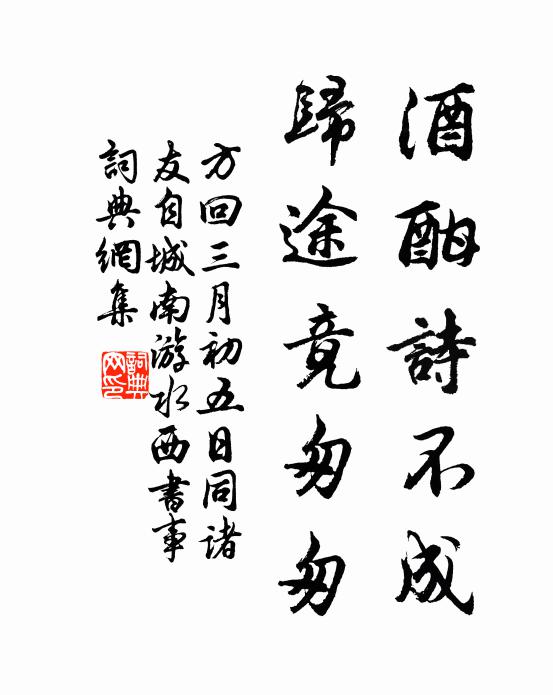 酒酣詩不成
歸途竟匆匆
方回三月初五日同諸
友自城南游水西書事
詞典網集
詞典网印